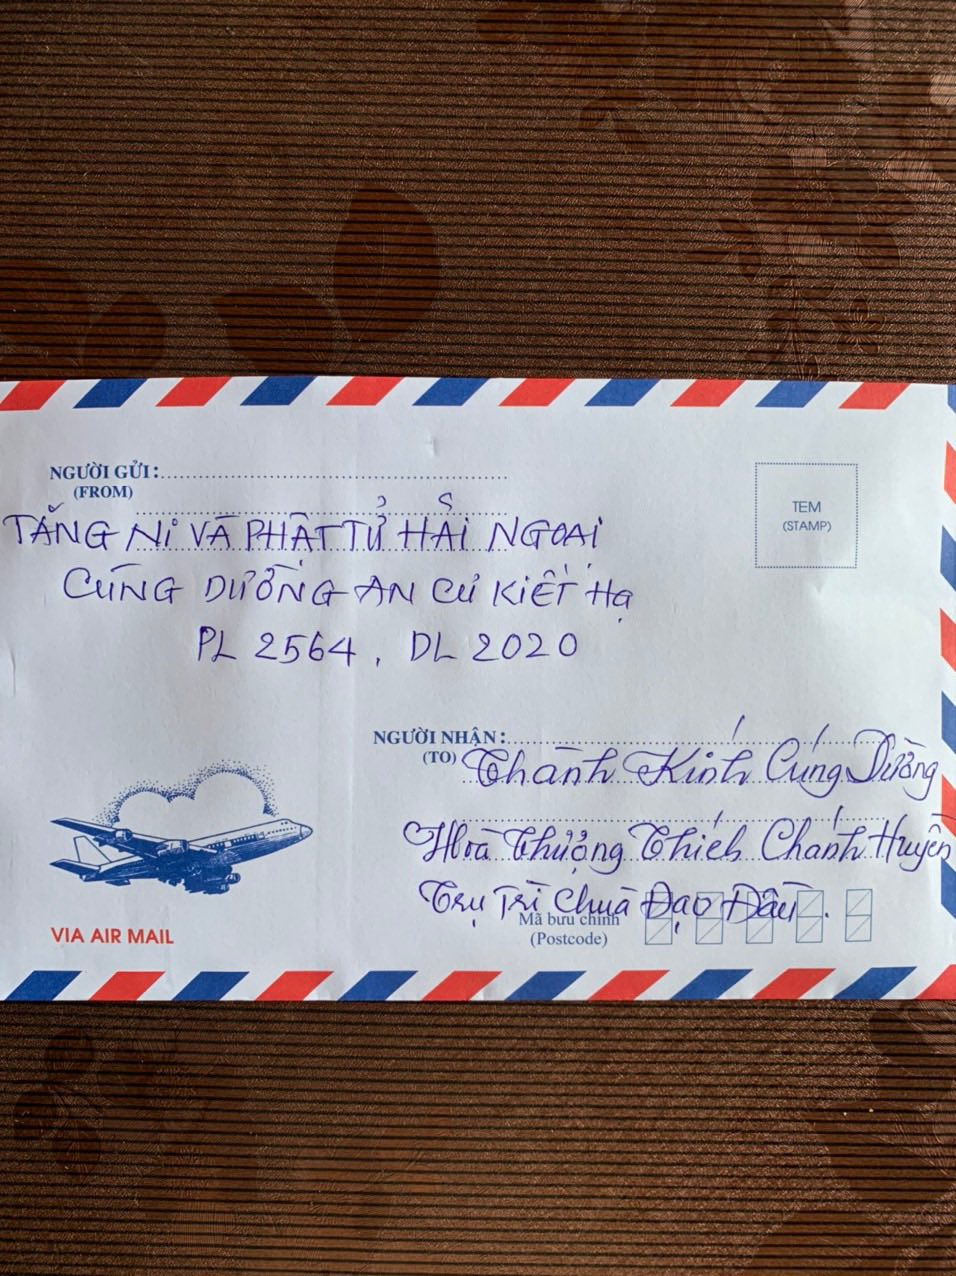 NGƯỜI GỬI:
(FROM)
TĂNG NI VÀ PHẬT TỬ HẢI NGOẠI
CÚNG DƯỜNG AN CƯ KIẾT HẠ
PL 2564, DL 2020
TEM
(STAMP)
NGƯỜI NHẬN:
(TO)
Thành Kính Cúng Dường
Hoà Thượng Thích Chánh Huyền
Trụ Trì Chùa Đạo Đầu.
Mã bưu chính
(Postcode)
VIA AIR MAIL